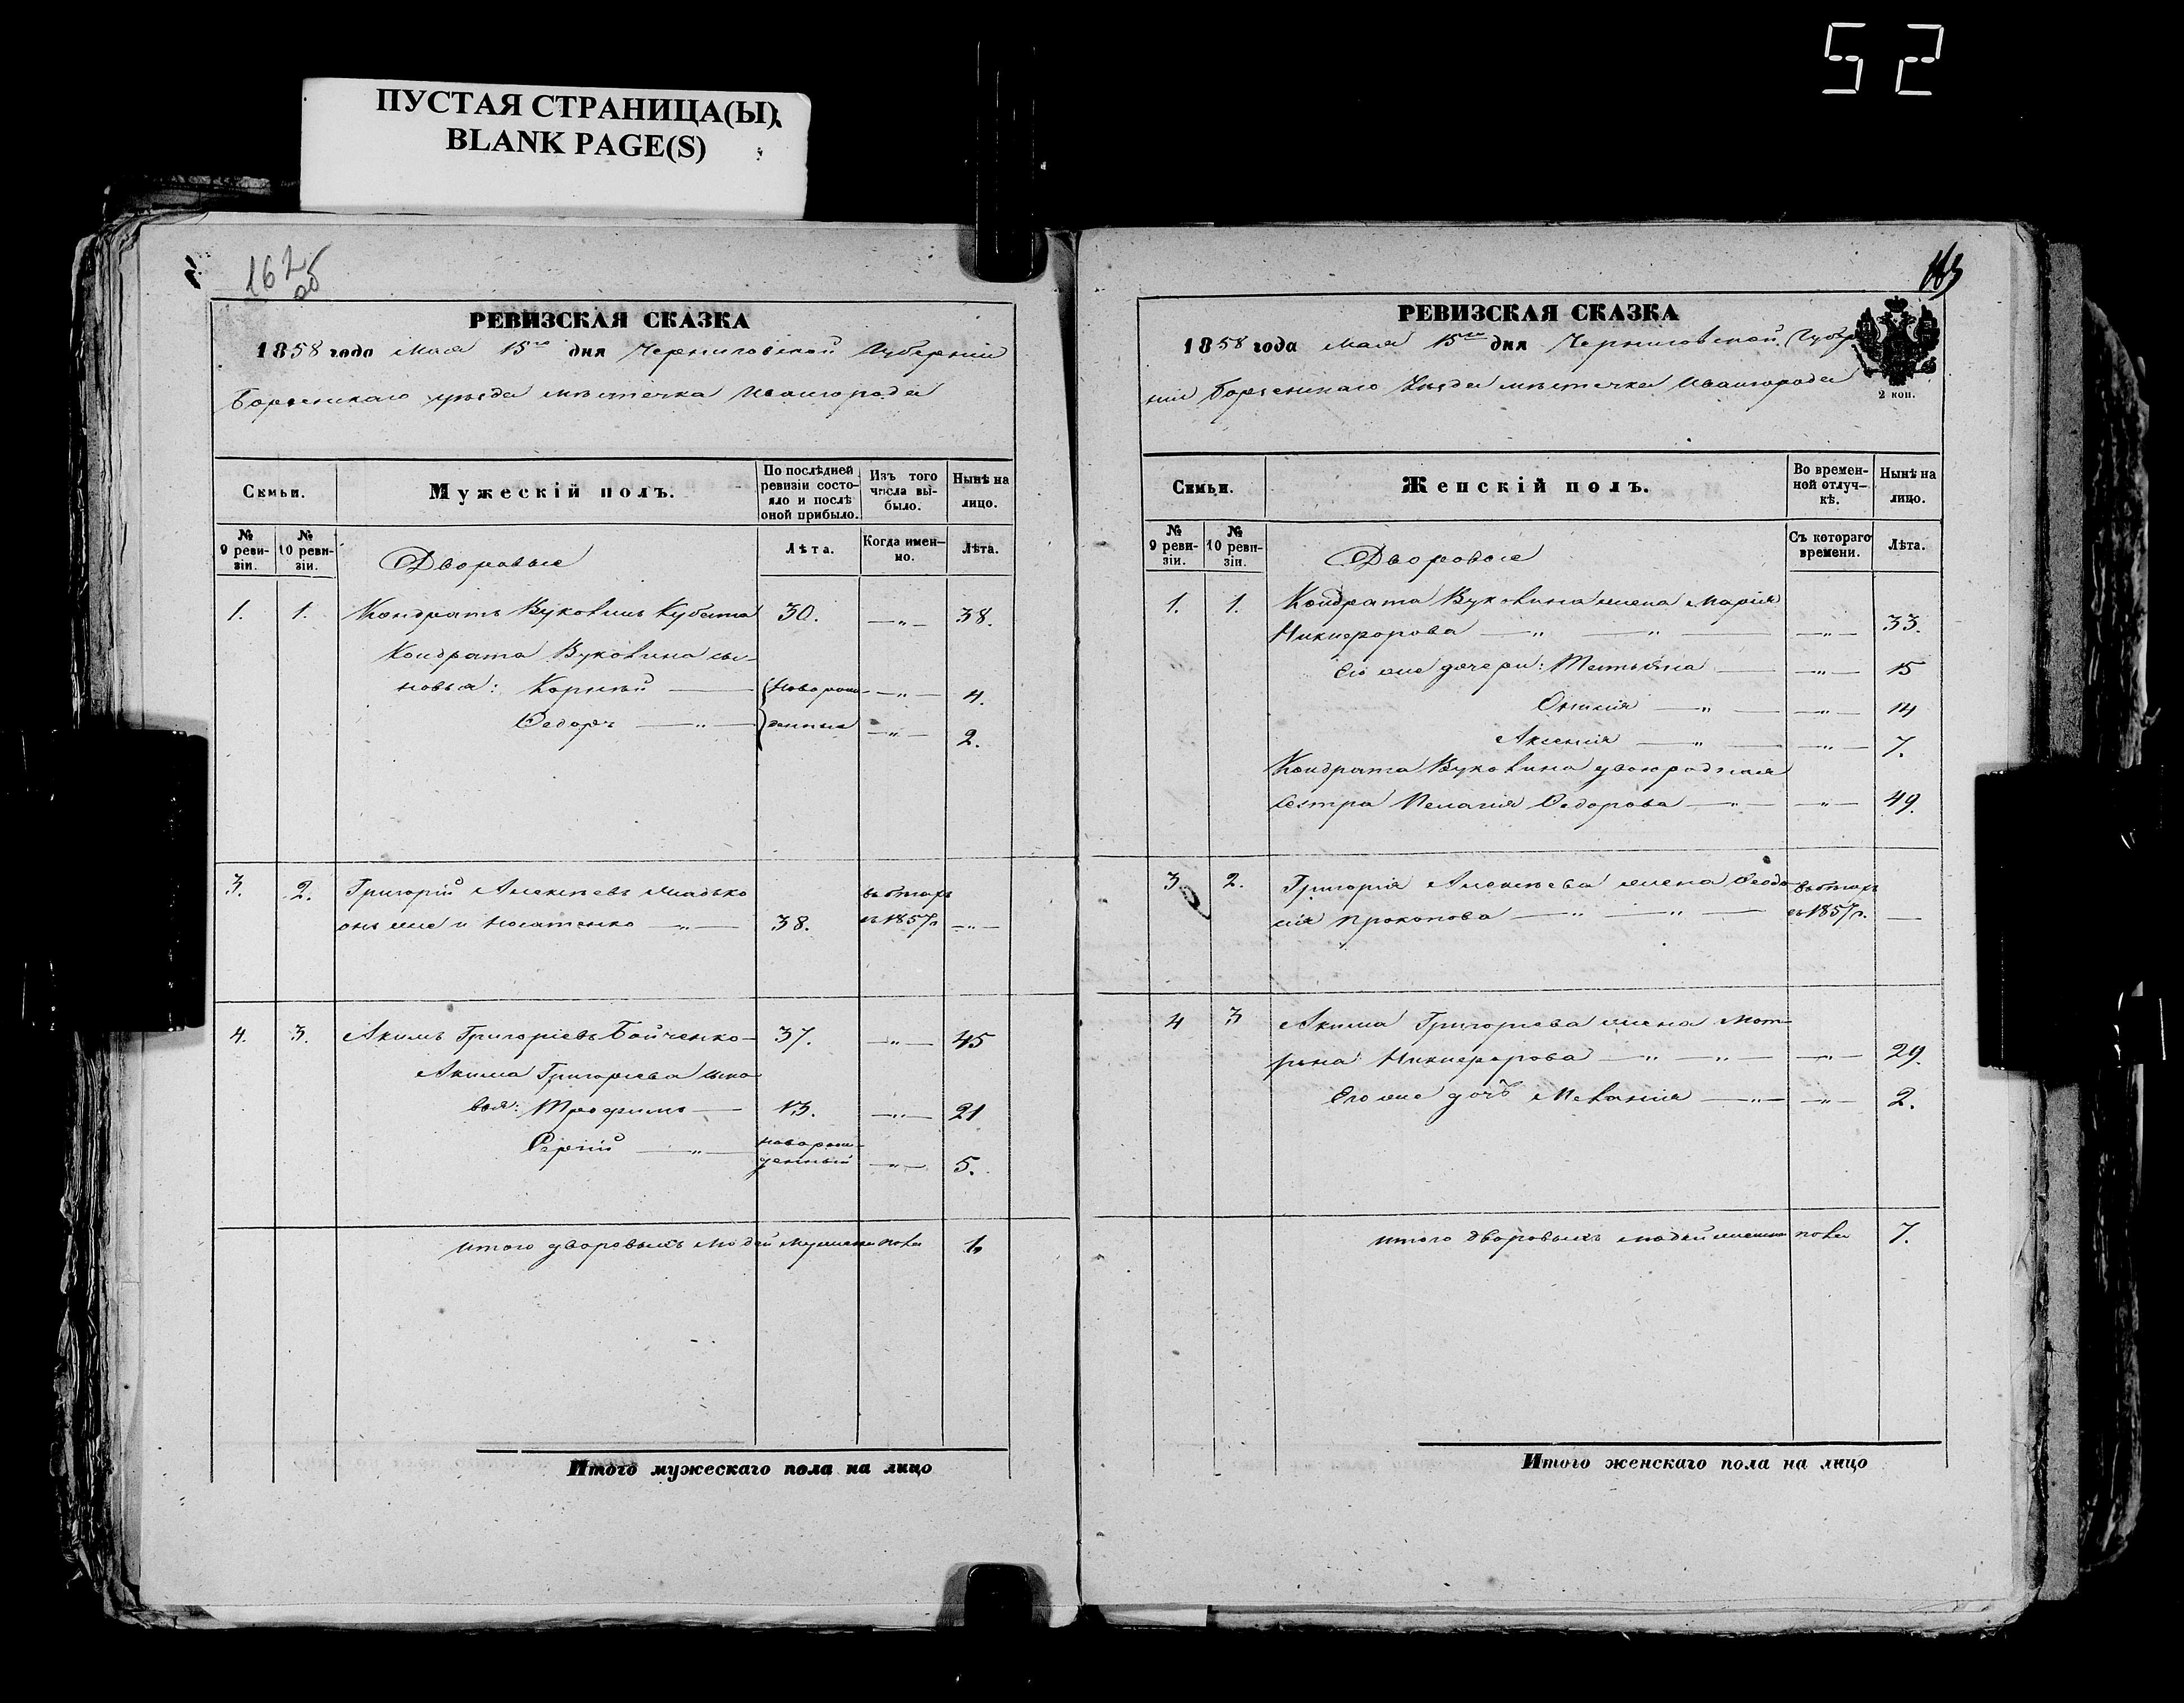 52
ПУСТАЯ СТРАНИЦА(Ы)
BLANK PAGE(S)
162
об
РЕВИЗСКАЯ СКАЗКА
1858 года Мая 15го дня Черниговской Губерніи
Борзенскаго уѣзда мѣстечка Ивангорода
Семьи.
Мужескій полъ.
По послѣдней ревизіи состояло и послѣ оной прибыло.
Изъ того числа выбыло.
Нынѣ на лицо.
№ 9 ревизіи.
№ 10 ревизіи.
Дворовые
Лѣта.
Когда именно.
Лѣта.
1. 1. Кондратъ Вуковинъ 30. —„— 38.
Кондрата Вуковина сы-
новья: Корнѣй — новорож- —„— 4.
Ѳедоръ —„— денные —„— 2.
3. 2. Григорій Алексѣевъ
онъ же и Носатенко —„— 38. въ 1857 г. —„—
4. 3. Акимъ Григоріевъ Бойченко 37. —„— 45
Акима Григорьева сыно-
вья: Трофимъ — 13. —„— 21
Сергій —„— новорож-
денный —„— 5.
итого дворовыхъ людей мужеска пола
Итого мужескаго пола на лицо
163
РЕВИЗСКАЯ СКАЗКА
1858 года мая 15го дня Черниговской Губер-
ніи Борзенскаго Уѣзда мѣстечка Ивангорода
2 коп.
Семьи.
Женскій полъ.
Во временной отлучкѣ.
Нынѣ на лицо.
№ 9 ревизіи.
№ 10 ревизіи.
Дворовые
Съ котораго времени.
Лѣта.
1. 1. Кондрата Вуковина жена Марія
Никифорова —„— —„— —„— 33.
Его же дочери: Татьяна — —„— 15
—„— —„— 14
Аксенія —„— —„— 7.
Кондрата Вуковина двоюродная
сестра Пелагія Ѳедорова —„— —„— 49.
3. 2. Григорія Алексѣева жена Ѳеодо-
сія Прокопова —„— —„— въ 1857 г. —
4 3 Акима Григорьева жена Мот-
рона Никифорова —„— —„— —„— 29.
Его же дочь Меланія —„— —„— 2.
итого дворовыхъ людей женска пола 7.
Итого женскаго пола на лицо